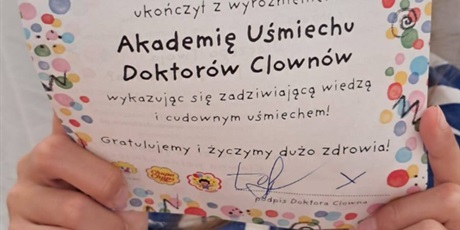 ukończył z wyróżnieniem
Akademię Uśmiechu
Doktorów Clownów
wykazując się zadziwiającą wiedzą
i cudownym uśmiechem!
Gratulujemy i życzymy dużo zdrowia!
podpis Doktora Clowna